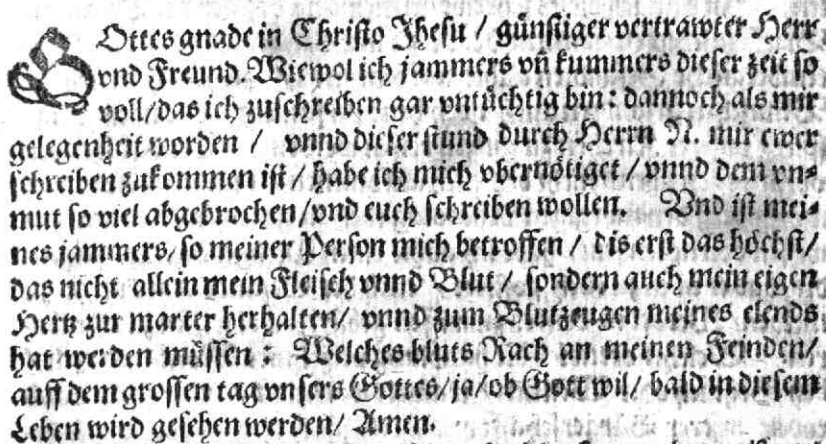 GOttes gnade in Christo Jhesu / günstiger vertrawter Herr
vnd Freund. Wiewol ich jammers vñ kummers dieser zeit so
voll/das ich zuschreiben gar vntüchtig bin: dannoch als mir
gelegenheit worden / vnnd dieser stund durch Herrn N. mir ewer
schreiben zukommen ist / habe ich mich vbernötiget / vnnd dem vn⸗
mut so viel abgebrochen/vnd euch schreiben wollen. Vnd ist mei⸗
nes jammers/ so meiner Person mich betroffen / dis erst das höchst/
das nicht allein mein Fleisch vnnd Blut / sondern auch mein eigen
Hertz zur marter herhalten/ vnnd zum Blutzeugen meines elends
hat werden müssen : Welches bluts Rach an meinen Feinden/
auff dem grossen tag vnsers Gottes/ja/ob Gott wil/ bald in diesem
Leben wird gesehen werden/ Amen.